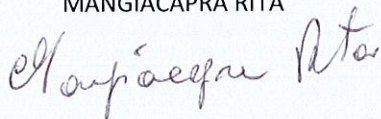 MANGIACAPRA RITA
Mangiacapra Rita